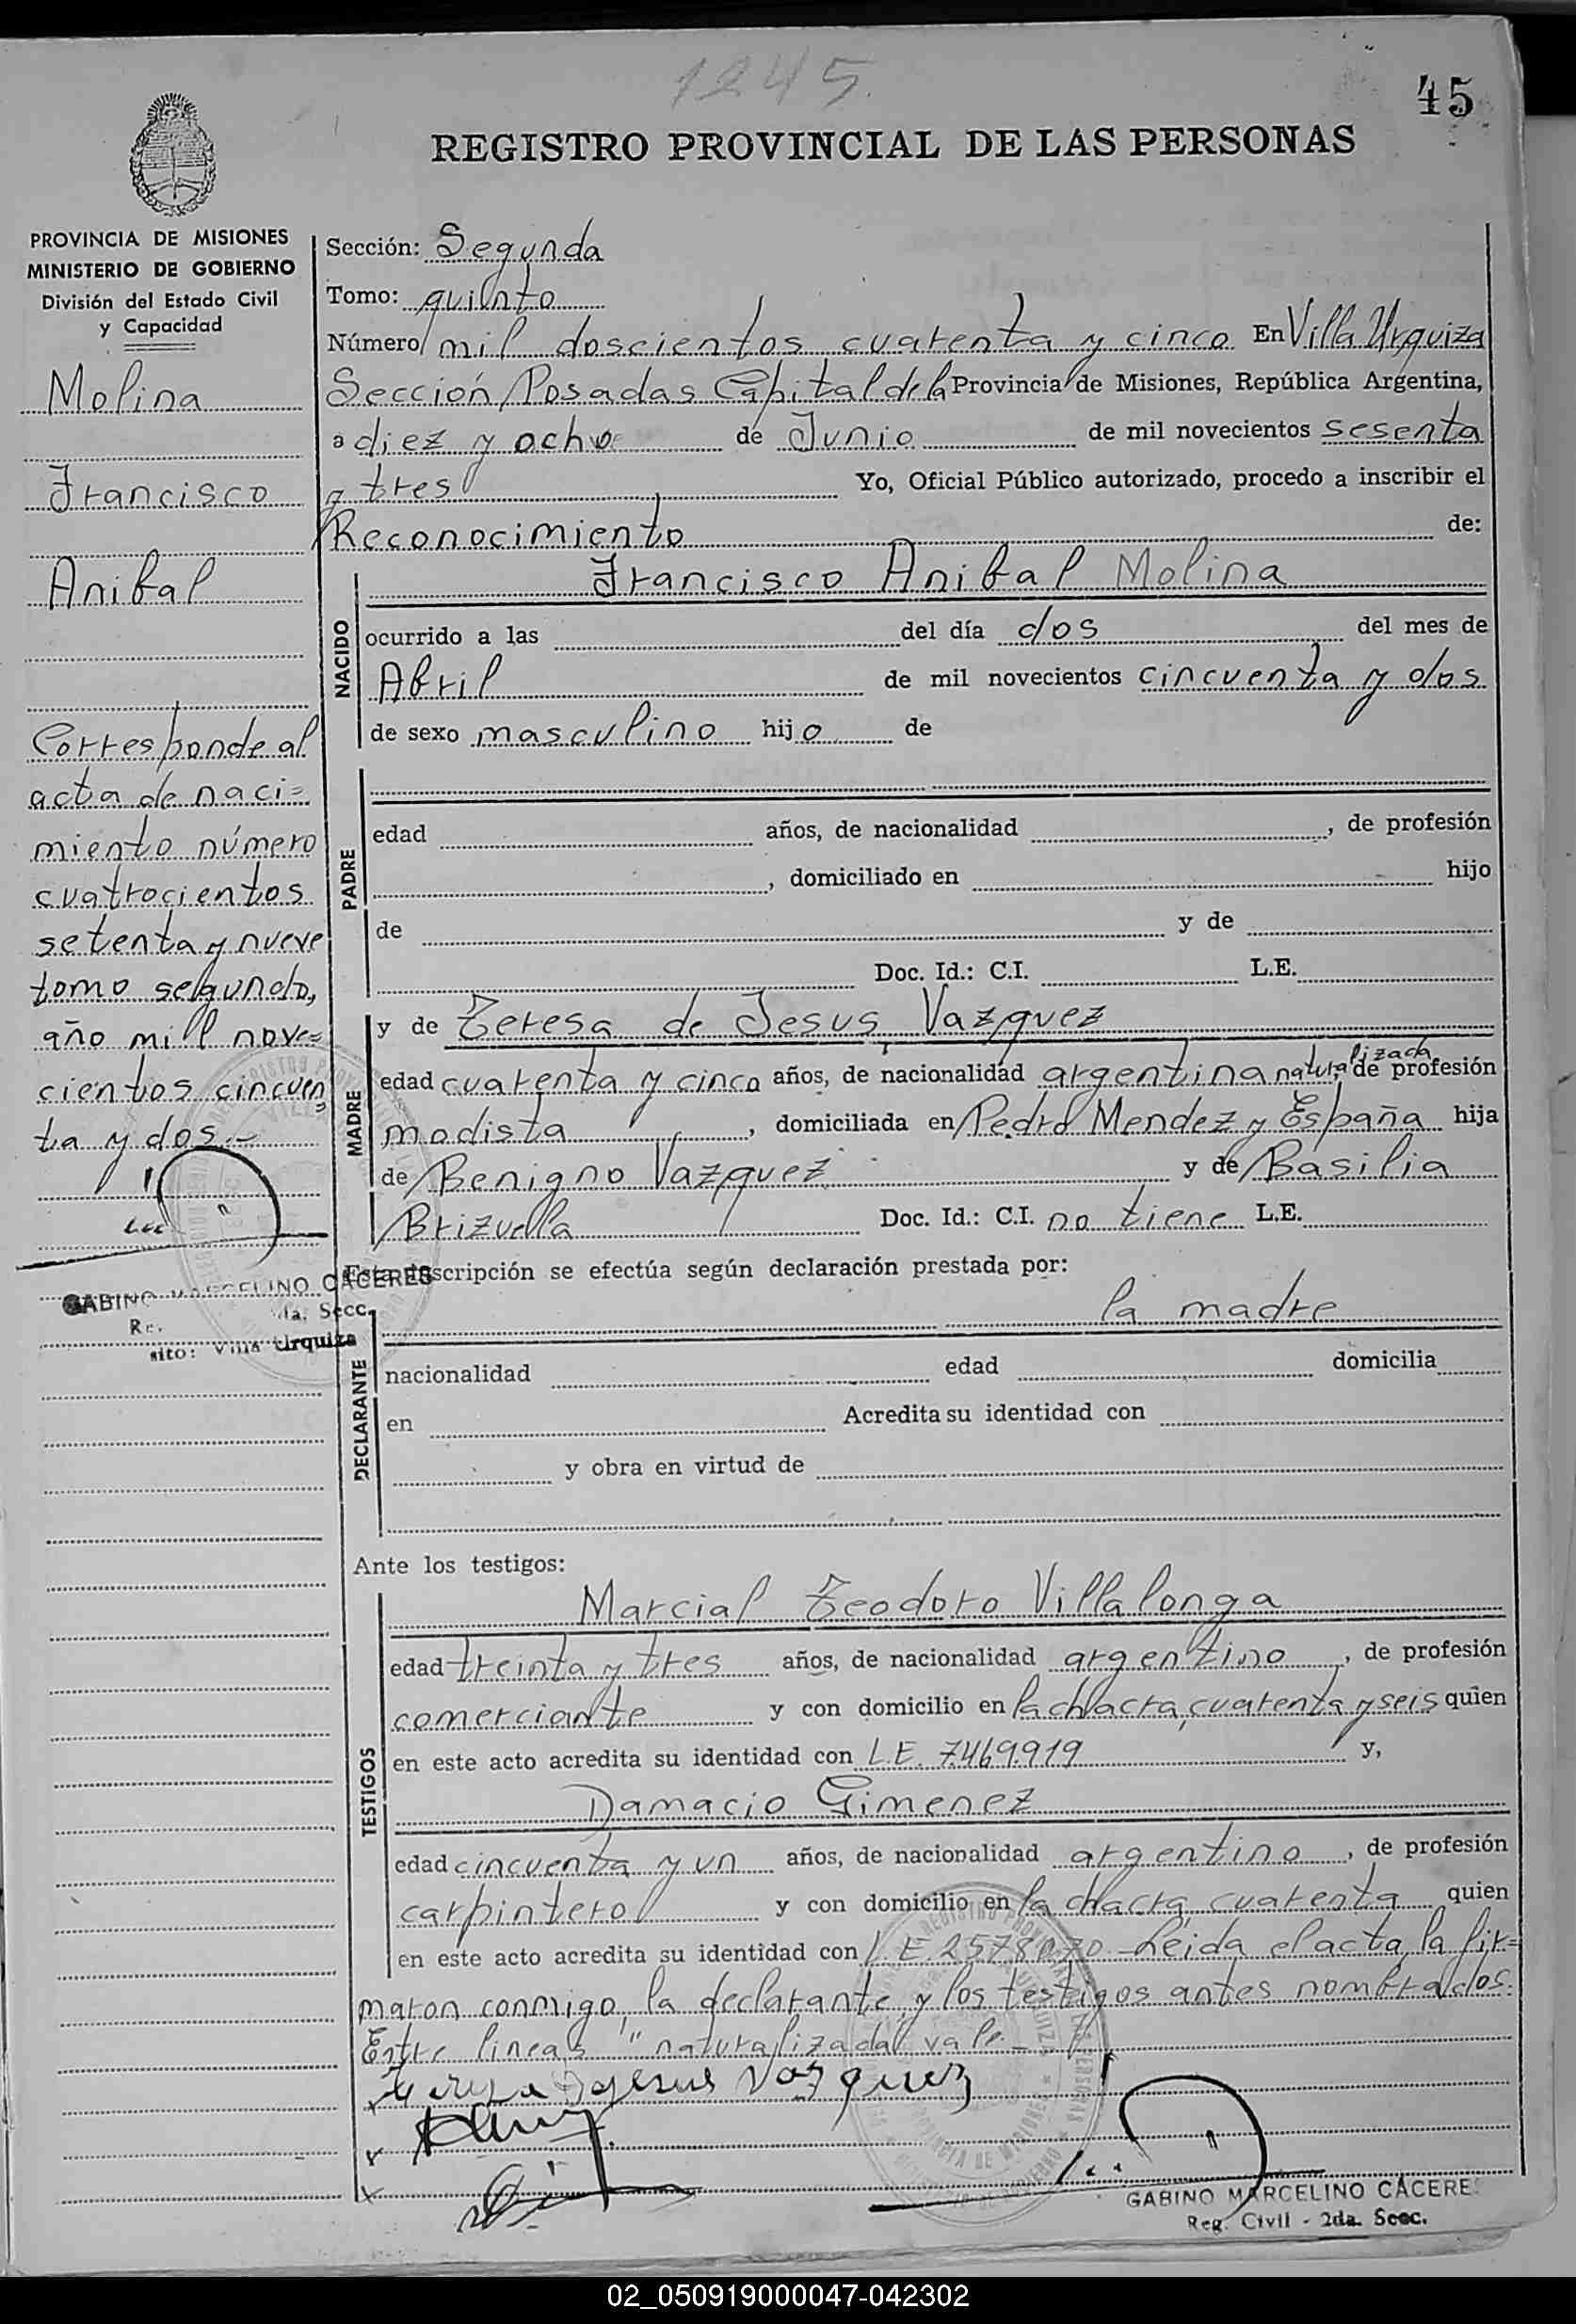 1245.
45
REGISTRO PROVINCIAL DE LAS PERSONAS
PROVINCIA DE MISIONES
MINISTERIO DE GOBIERNO
División del Estado Civil
y Capacidad
Molina
Francisco
Anibal
Corresponde al
acta de naci=
miento número
cuatrocientos
setenta y nueve
tomo segundo,
año mil nove=
cientos cincuen
ta y dos.-
GABINO MARCELINO CÁCERES
2da. Secc.
sito: Villa Urquiza
Sección: Segunda
Tomo: quinto
Número mil doscientos cuarenta y cinco En Villa Urquiza
Sección Posadas Capital de la Provincia de Misiones, República Argentina,
a diez y ocho de Junio de mil novecientos sesenta
y tres Yo, Oficial Público autorizado, procedo a inscribir el
Reconocimiento de:
NACIDO
Francisco Anibal Molina
ocurrido a las del día dos del mes de
Abril de mil novecientos cincuenta y dos
de sexo masculino hijo de
PADRE
edad años, de nacionalidad , de profesión
, domiciliado en hijo
de y de
Doc. Id.: C.I. L.E.
MADRE
y de Teresa de Jesus Vazquez
edad cuarenta y cinco años, de nacionalidad argentina naturalizada de profesión
modista , domiciliada en Pedro Mendez y España hija
de Benigno Vazquez y de Basilia
Brizuella Doc. Id.: C.I. no tiene L.E.
Esta inscripción se efectúa según declaración prestada por:
DECLARANTE
la madre
nacionalidad edad domicilia
en Acredita su identidad con
y obra en virtud de
Ante los testigos:
TESTIGOS
Marcial Teodoro Villalonga
edad treinta y tres años, de nacionalidad argentino , de profesión
comerciante y con domicilio en la chacra cuarenta y seis quien
en este acto acredita su identidad con L.E. 7.469.919 y,
Damacio Gimenez
edad cincuenta y un años, de nacionalidad argentino , de profesión
carpintero y con domicilio en la chacra cuarenta quien
en este acto acredita su identidad con L.E. Leida el acta, la fir=
maron conmigo, la declarante y los testigos antes nombrados.
Entre lineas "naturalizada" vale.-
Teresa de Jesus Vazquez
GABINO MARCELINO CÁCERES
Reg. Civil - 2da. Secc.
02_050919000047-042302